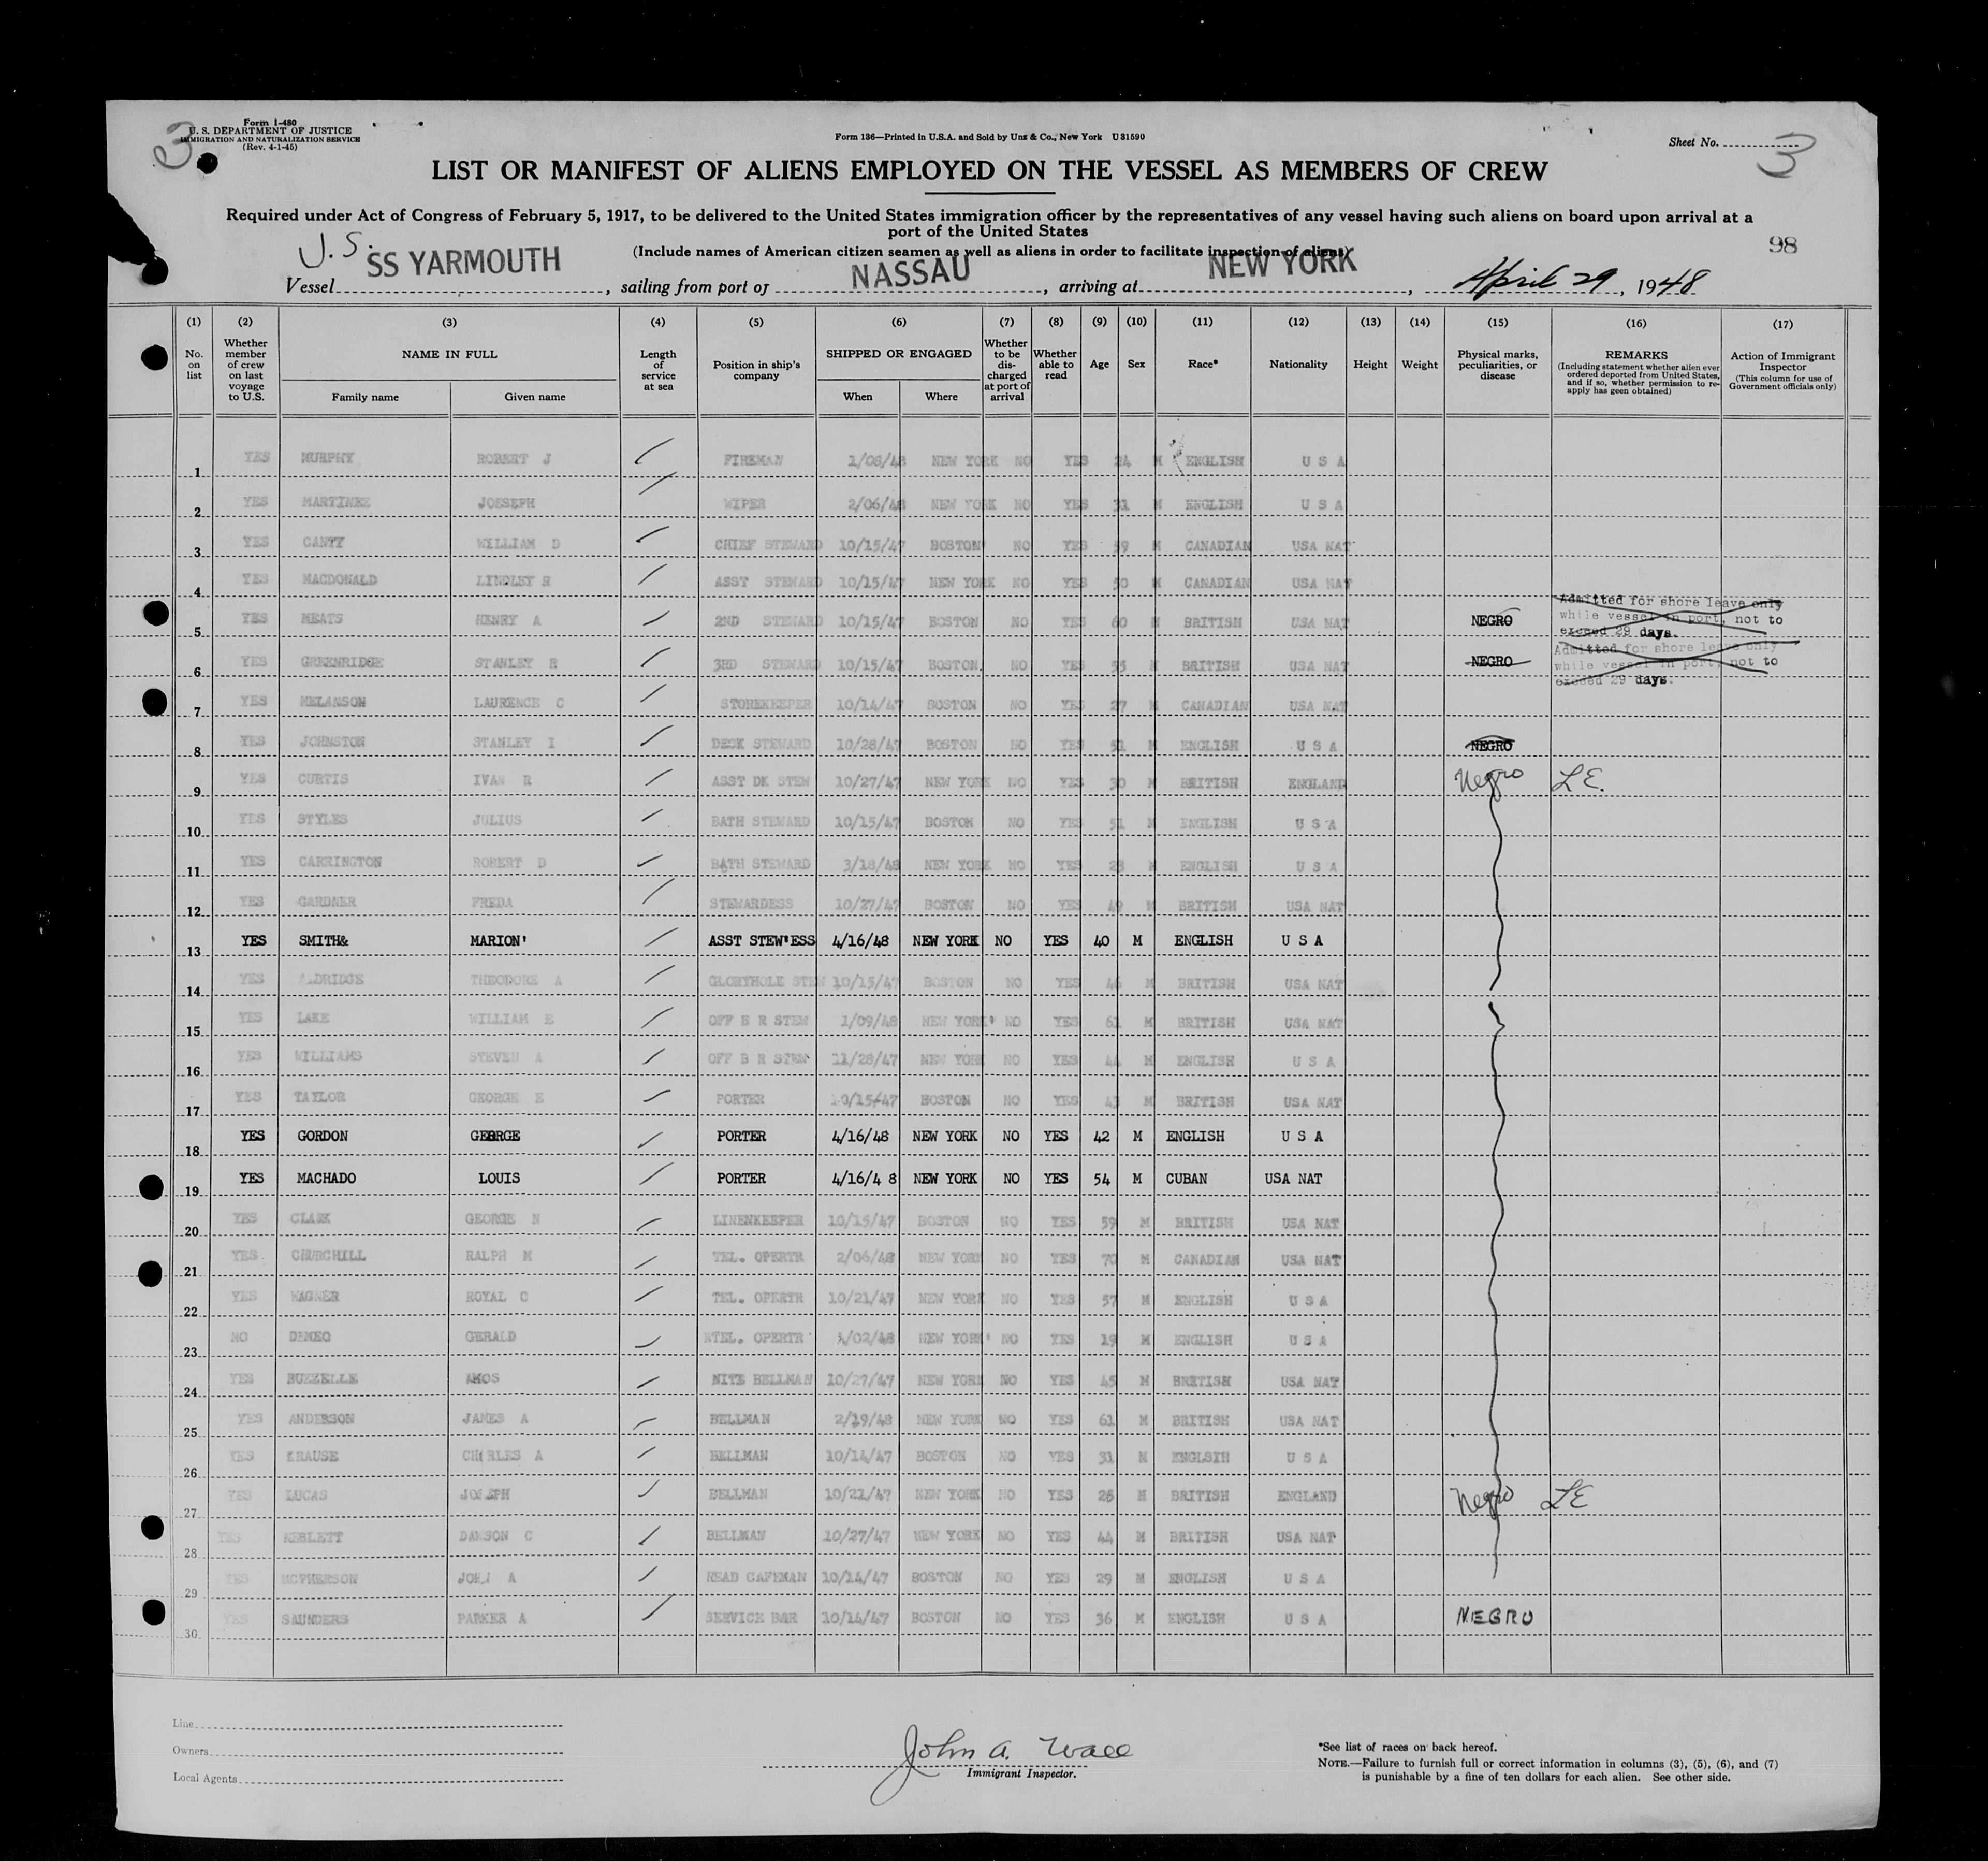 Form I-480
U. S. DEPARTMENT OF JUSTICE
IMMIGRATION AND NATURALIZATION SERVICE
(Rev. 4-1-45)
3
Form 136—Printed in U.S.A. and Sold by Unz & Co., New York U31590
Sheet No. 3
LIST OR MANIFEST OF ALIENS EMPLOYED ON THE VESSEL AS MEMBERS OF CREW
Required under Act of Congress of February 5, 1917, to be delivered to the United States immigration officer by the representatives of any vessel having such aliens on board upon arrival at a
port of the United States
(Include names of American citizen seamen as well as aliens in order to facilitate inspection of aliens)
98
Vessel U.S. SS YARMOUTH, sailing from port of NASSAU, arriving at NEW YORK, April 29, 1948
(1) No. on list (2) Whether member of crew on last voyage to U.S. (3) NAME IN FULL Family name Given name (4) Length of service at sea (5) Position in ship's company (6) SHIPPED OR ENGAGED When Where (7) Whether to be discharged at port of arrival (8) Whether able to read (9) Age (10) Sex (11) Race* (12) Nationality (13) Height (14) Weight (15) Physical marks, peculiarities, or disease (16) REMARKS (Including statement whether alien ever ordered deported from United States, and if so, whether permission to re-apply has geen obtained) (17) Action of Immigrant Inspector (This column for use of Government officials only)
1 YES MURPHY ROBERT J FIREMAN 1/08/48 NEW YORK NO YES 24 M ENGLISH U S A
2 YES MARTINKE JOSSEPH WIPER 2/06/48 NEW YORK NO YES 31 M ENGLISH U S A
3 YES CANTY WILLIAM D CHIEF STEWARD 10/15/47 BOSTON NO YES 59 M CANADIAN USA NAT
4 YES MACDONALD LINDLEY R ASST STEWARD 10/15/47 NEW YORK NO YES 50 M CANADIAN USA NAT
5 YES MEATS HENRY A 2ND STEWARD 10/15/47 BOSTON NO YES 60 M BRITISH USA NAT NEGRO Admitted for shore leave only while vessel in port, not to exceed 29 days.
6 YES GREENRIDGE STANLEY R 3RD STEWARD 10/15/47 BOSTON NO YES 55 M BRITISH USA NAT NEGRO Admitted for shore leave only while vessel in port, not to exceed 29 days.
7 YES MELANSON LAURENCE C STOREKEEPER 10/14/47 BOSTON NO YES 27 M CANADIAN USA NAT
8 YES JOHNSTON STANLEY I DECK STEWARD 10/28/47 BOSTON NO YES 51 M ENGLISH U S A NEGRO
9 YES CURTIS IVAN R ASST DK STEW 10/27/47 NEW YORK NO YES 30 M BRITISH ENGLAND Negro LE.
10 YES STYLES JULIUS BATH STEWARD 10/15/47 BOSTON NO YES 51 M ENGLISH U S A
11 YES CARRINGTON ROBERT D BATH STEWARD 3/18/48 NEW YORK NO YES 28 M ENGLISH U S A
12 YES GARDNER FREDA STEWARDESS 10/27/47 BOSTON NO YES 49 M BRITISH USA NAT
13 YES SMITH& MARION' ASST STEW'ESS 4/16/48 NEW YORK NO YES 40 M ENGLISH U S A
14 YES ALDRIDGE THEODORE A GLORYHOLE STEW 10/15/47 BOSTON NO YES 46 M BRITISH USA NAT
15 YES LAKE WILLIAM E OFF B R STEW 1/09/48 NEW YORK NO YES 61 M BRITISH USA NAT
16 YES WILLIAMS STEVEN A OFF B R STEW 11/28/47 NEW YORK NO YES 44 M ENGLISH U S A
17 YES TAYLOR GEORGE E PORTER 10/15/47 BOSTON NO YES 43 M BRITISH USA NAT
18 YES GORDON GEORGE PORTER 4/16/48 NEW YORK NO YES 42 M ENGLISH U S A
19 YES MACHADO LOUIS PORTER 4/16/4 8 NEW YORK NO YES 54 M CUBAN USA NAT
20 YES CLARK GEORGE N LINENKEEPER 10/15/47 BOSTON NO YES 59 M BRITISH USA NAT
21 YES CHURCHILL RALPH M TEL. OPERTR 2/06/48 NEW YORK NO YES 70 M CANADIAN USA NAT
22 YES WAGNER ROYAL C TEL. OPERTR 10/21/47 NEW YORK NO YES 57 M ENGLISH U S A
23 NO DEMEO GERALD TEL. OPERTR 4/02/48 NEW YORK NO YES 19 M ENGLISH U S A
24 YES BUZZELLE AMOS NITE BELLMAN 10/27/47 NEW YORK NO YES 45 M BRITISH USA NAT
25 YES ANDERSON JAMES A BELLMAN 2/19/48 NEW YORK NO YES 61 M BRITISH USA NAT
26 YES KRAUSE CHARLES A BELLMAN 10/14/47 BOSTON NO YES 31 M ENGLSIH U S A
27 YES LUCAS JOSEPH BELLMAN 10/21/47 NEW YORK NO YES 26 M BRITISH ENGLAND Negro LE
28 YES NEBLETT DAWSON C BELLMAN 10/27/47 NEW YORK NO YES 44 M BRITISH USA NAT
29 YES MCPHERSON JOHN A HEAD CAFEMAN 10/14/47 BOSTON NO YES 29 M ENGLISH U S A
30 YES SAUNDERS PARKER A SERVICE BAR 10/14/47 BOSTON NO YES 36 M ENGLISH U S A NEGRO
Line
Owners
Local Agents
John A. Wall
Immigrant Inspector.
*See list of races on back hereof.
NOTE.—Failure to furnish full or correct information in columns (3), (5), (6), and (7)
is punishable by a fine of ten dollars for each alien. See other side.